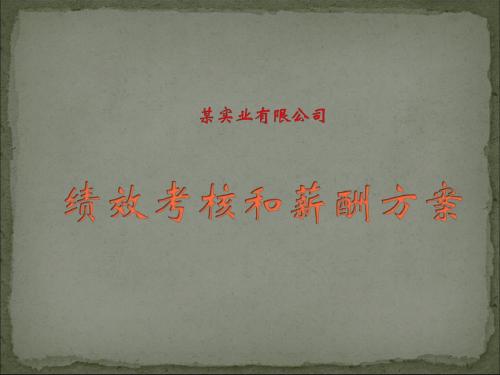 某实业有限公司
绩效考核和薪酬方案